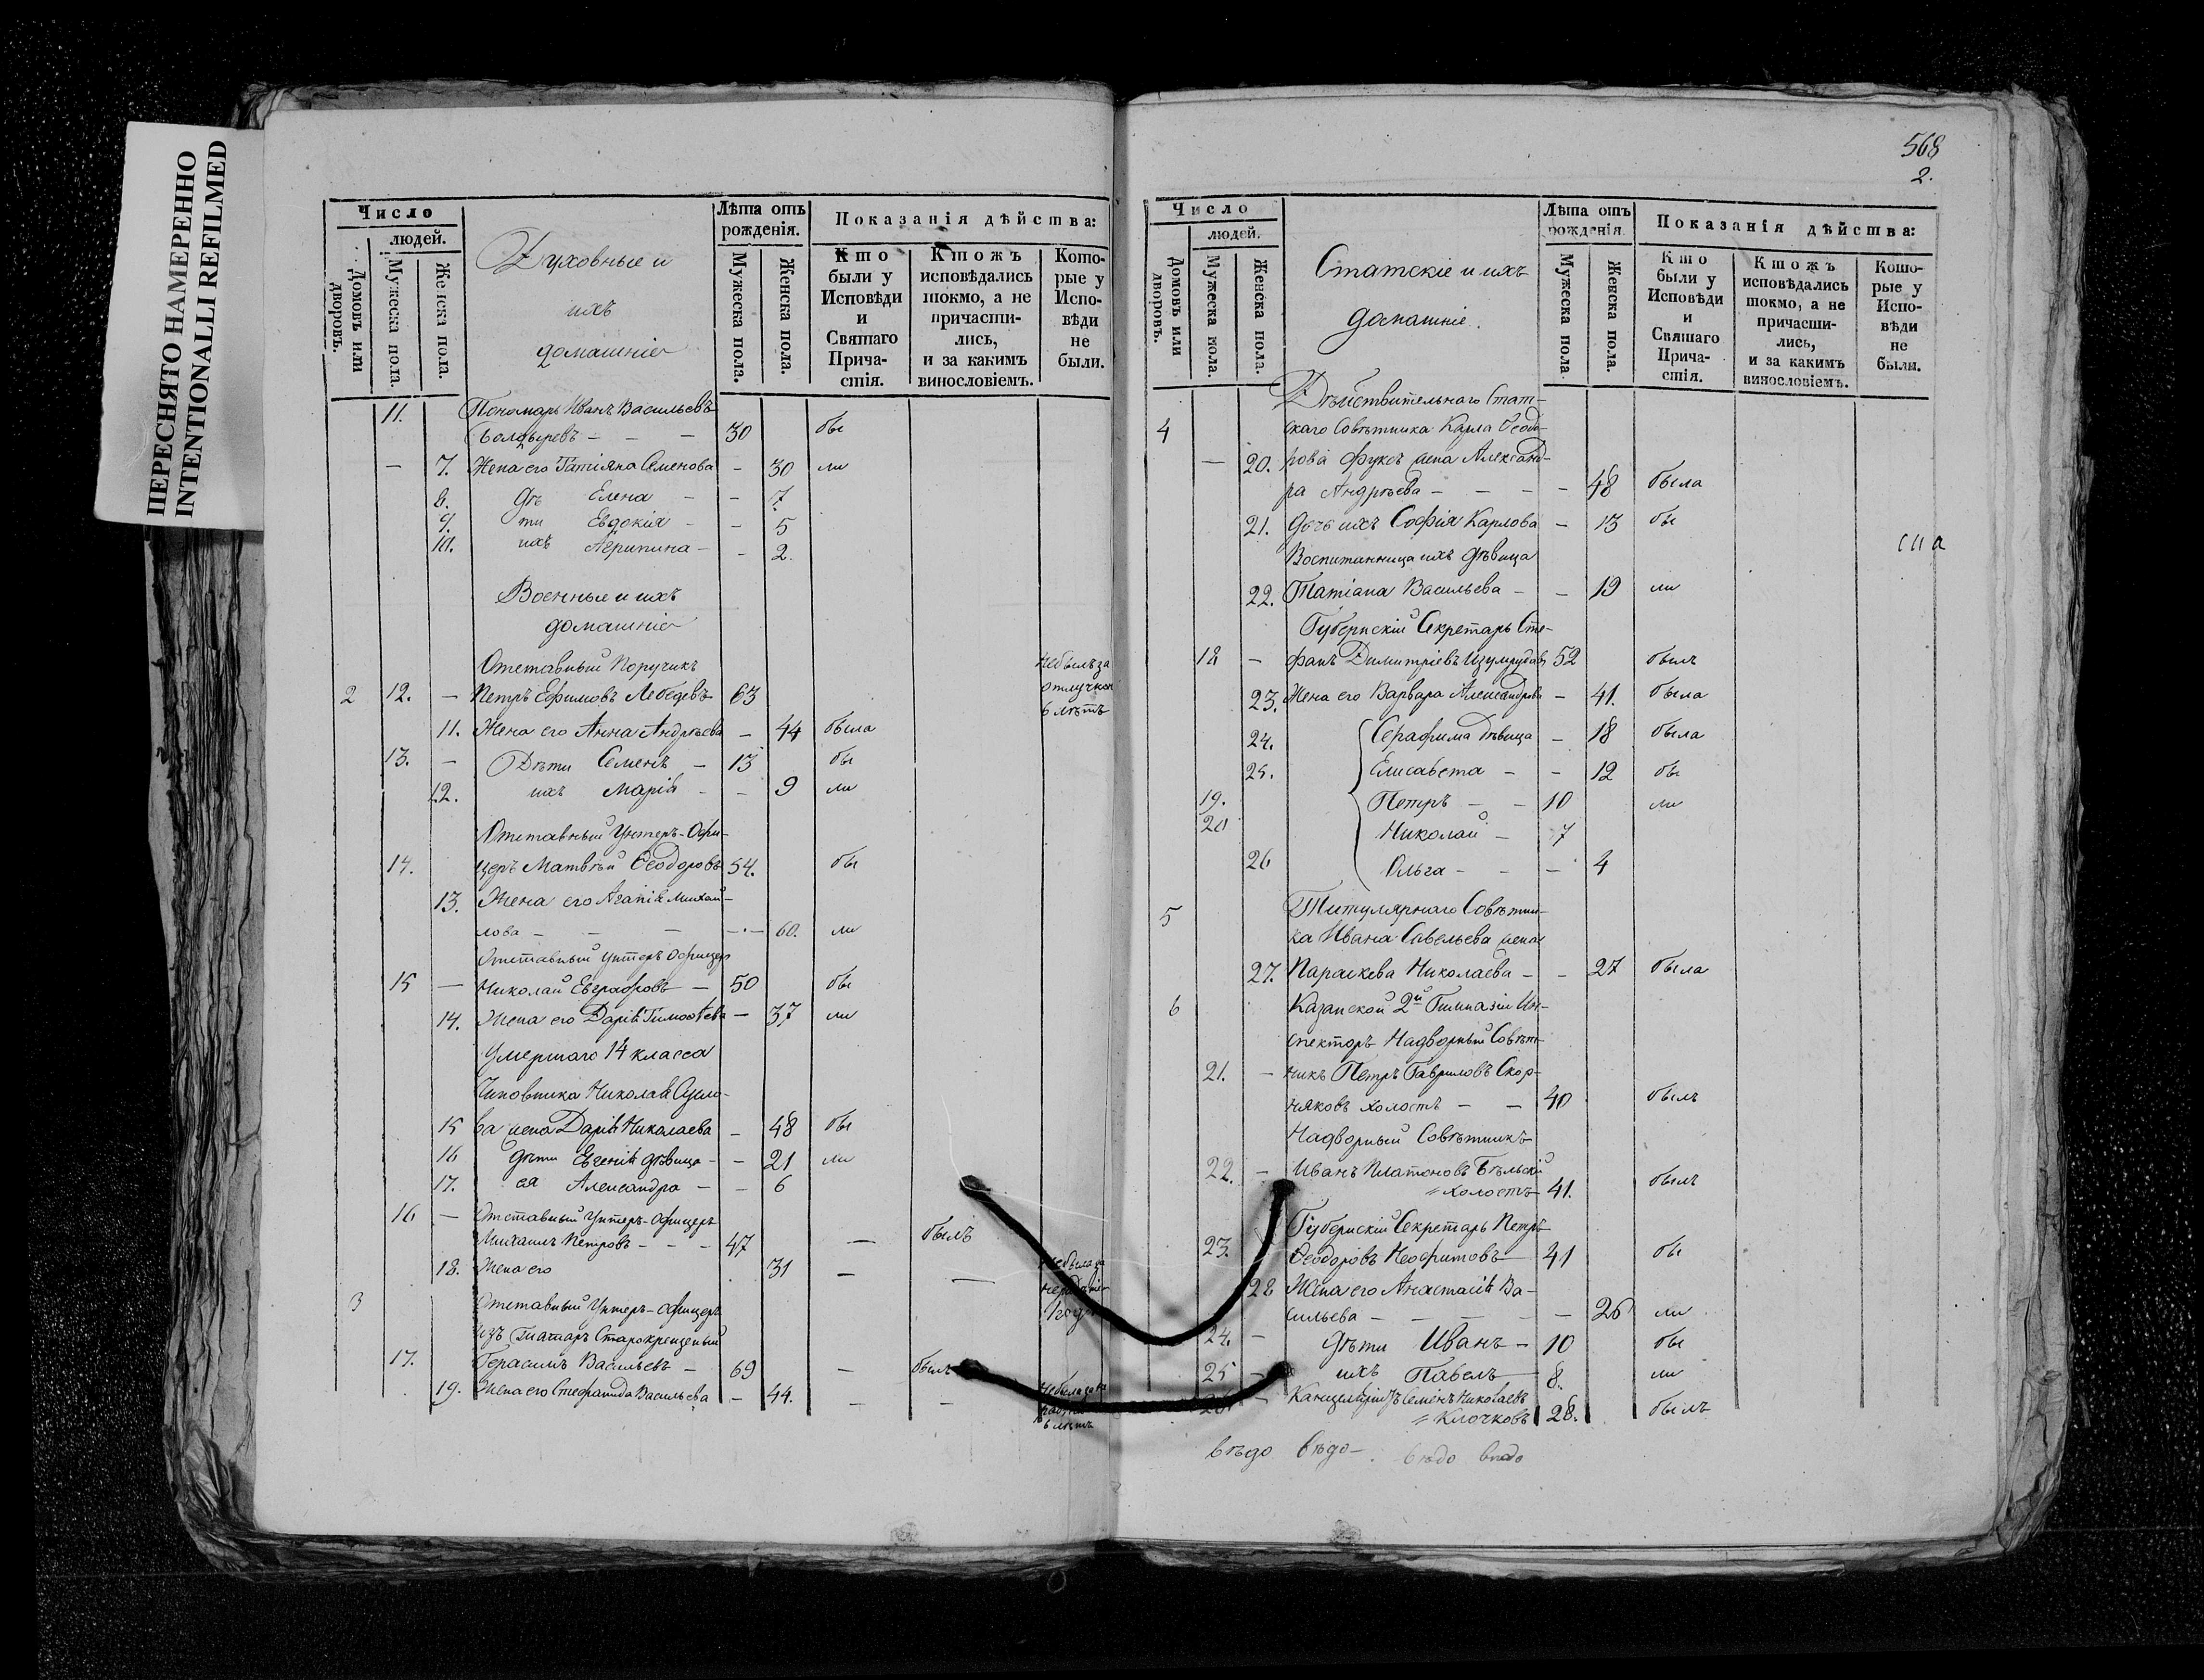 ПЕРЕСНЯТО НАМЕРЕННО
INTENTIONALLI REFILMED
Число
людей.
Домовъ или дворовъ.
Мужеска пола.
Женска пола.
Духовные и
ихъ
домашніе
Лѣта отъ рожденія.
Мужеска пола.
Женска пола.
Показанія дѣйства:
Кто были у Исповѣди и Святаго Причастія.
Ктожъ исповѣдались токмо, а не причастились, и за какимъ винословіемъ.
Которые у Исповѣди не были.
11. Пономарь Иванъ Васильевъ
30 бы
— 7. Жена его Татіяна Семенова — 30 ли
8. дѣ Елена — — 7
9. ти Евдокія — — 5
10. ихъ Агрипина — — 2.
Военные и ихъ
домашніе
Отставный Поручикъ Не былъ за
2 12. — Петръ Ефимовъ Лебедевъ 63 отлучкою
6 лѣтъ
11. Жена его Анна Андрѣева — 44 была
13. — Дѣти Семенъ — 13 бы
12. ихъ Марія — — 9 ли
Отставный Унтеръ-Офи-
14. церъ Матвѣй Ѳеодоровъ 54. бы
13. Жена его Агапія Михай-
лова — — — 60. ли
Отставный Унтеръ Офицеръ
15 — Николай Евграфовъ — 50 бы
14. Жена его Дарія Тимоѳѣева — 37 ли
Умершаго 14 класса
Чиновника Николая
15 ва жена Дарія Николаева — 48 бы
16 дѣти Евгенія дѣвица — — 21 ли
17. ея Александра — — 6
16 — Отставный Унтеръ-Офицеръ
Михаилъ Петровъ — — — 47 — былъ
18. Жена его 31 — — Не была за
1 годъ
3 Отставный Унтеръ-Офицеръ
изъ Татаръ Старокрещеный
17. Герасимъ Васильевъ — 69 — былъ
19. Жена его Стефанида Васильева — 44. — — Не была
6 лѣтъ
568
2.
Число
людей.
Домовъ или дворовъ.
Мужеска пола.
Женска пола.
Статскіе и ихъ
домашніе.
Лѣта отъ рожденія
Мужеска пола
Женска пола.
Показанія дѣйства:
Кто были у Исповѣди и Святаго Причастія.
Ктожъ исповѣдались токмо, а не причастились, и за какимъ винословіемъ.
Которые у Исповѣди не были.
Дѣйствительнаго Стат-
4 скаго Совѣтника Карла Ѳеодо-
— 20. рова Фуксъ жена Александ-
ра Андрѣева — — — — 48 была
21. Дочь ихъ Софія Карлова — 13 бы
Воспитанница ихъ дѣвица
22. Татіана Васильева — — 19 ли
Губернскій Секретарь Сте-
18 — фанъ Димитріевъ Изумрудовъ 52 былъ
23. Жена его Варвара Александров — 41. была
24. Серафима дѣвица — 18 была
25. Елисавета — — 12 бы
19. Петръ — — 10 ли
20 Николай — 7
26 Ольга — — — 4
5 Титулярнаго Совѣтни-
ка Ивана Савельева жена
27. Параскева Николаева — — 27 была
6 Казанской 2й Гимназіи Ин-
спекторъ Надворный Совѣт-
21. — никъ Петръ Гавриловъ Скор-
няковъ холостъ — — 40 былъ
Надворный Совѣтникъ
22. — Иванъ Платоновъ Бѣльскій
холостъ 41. былъ
Губернскій Секретарь Петръ
23. Ѳеодоровъ Неофитовъ 41 бы
28 Жена его Анастасія Ва-
сильева — — — — — 26 ли
24. — дѣти Иванъ — 10 бы
25 — ихъ Павелъ 8. ли
26 — Семенъ Николаевъ
Клочковъ 28. былъ
вѣдо вѣдо — вѣдо вѣдо